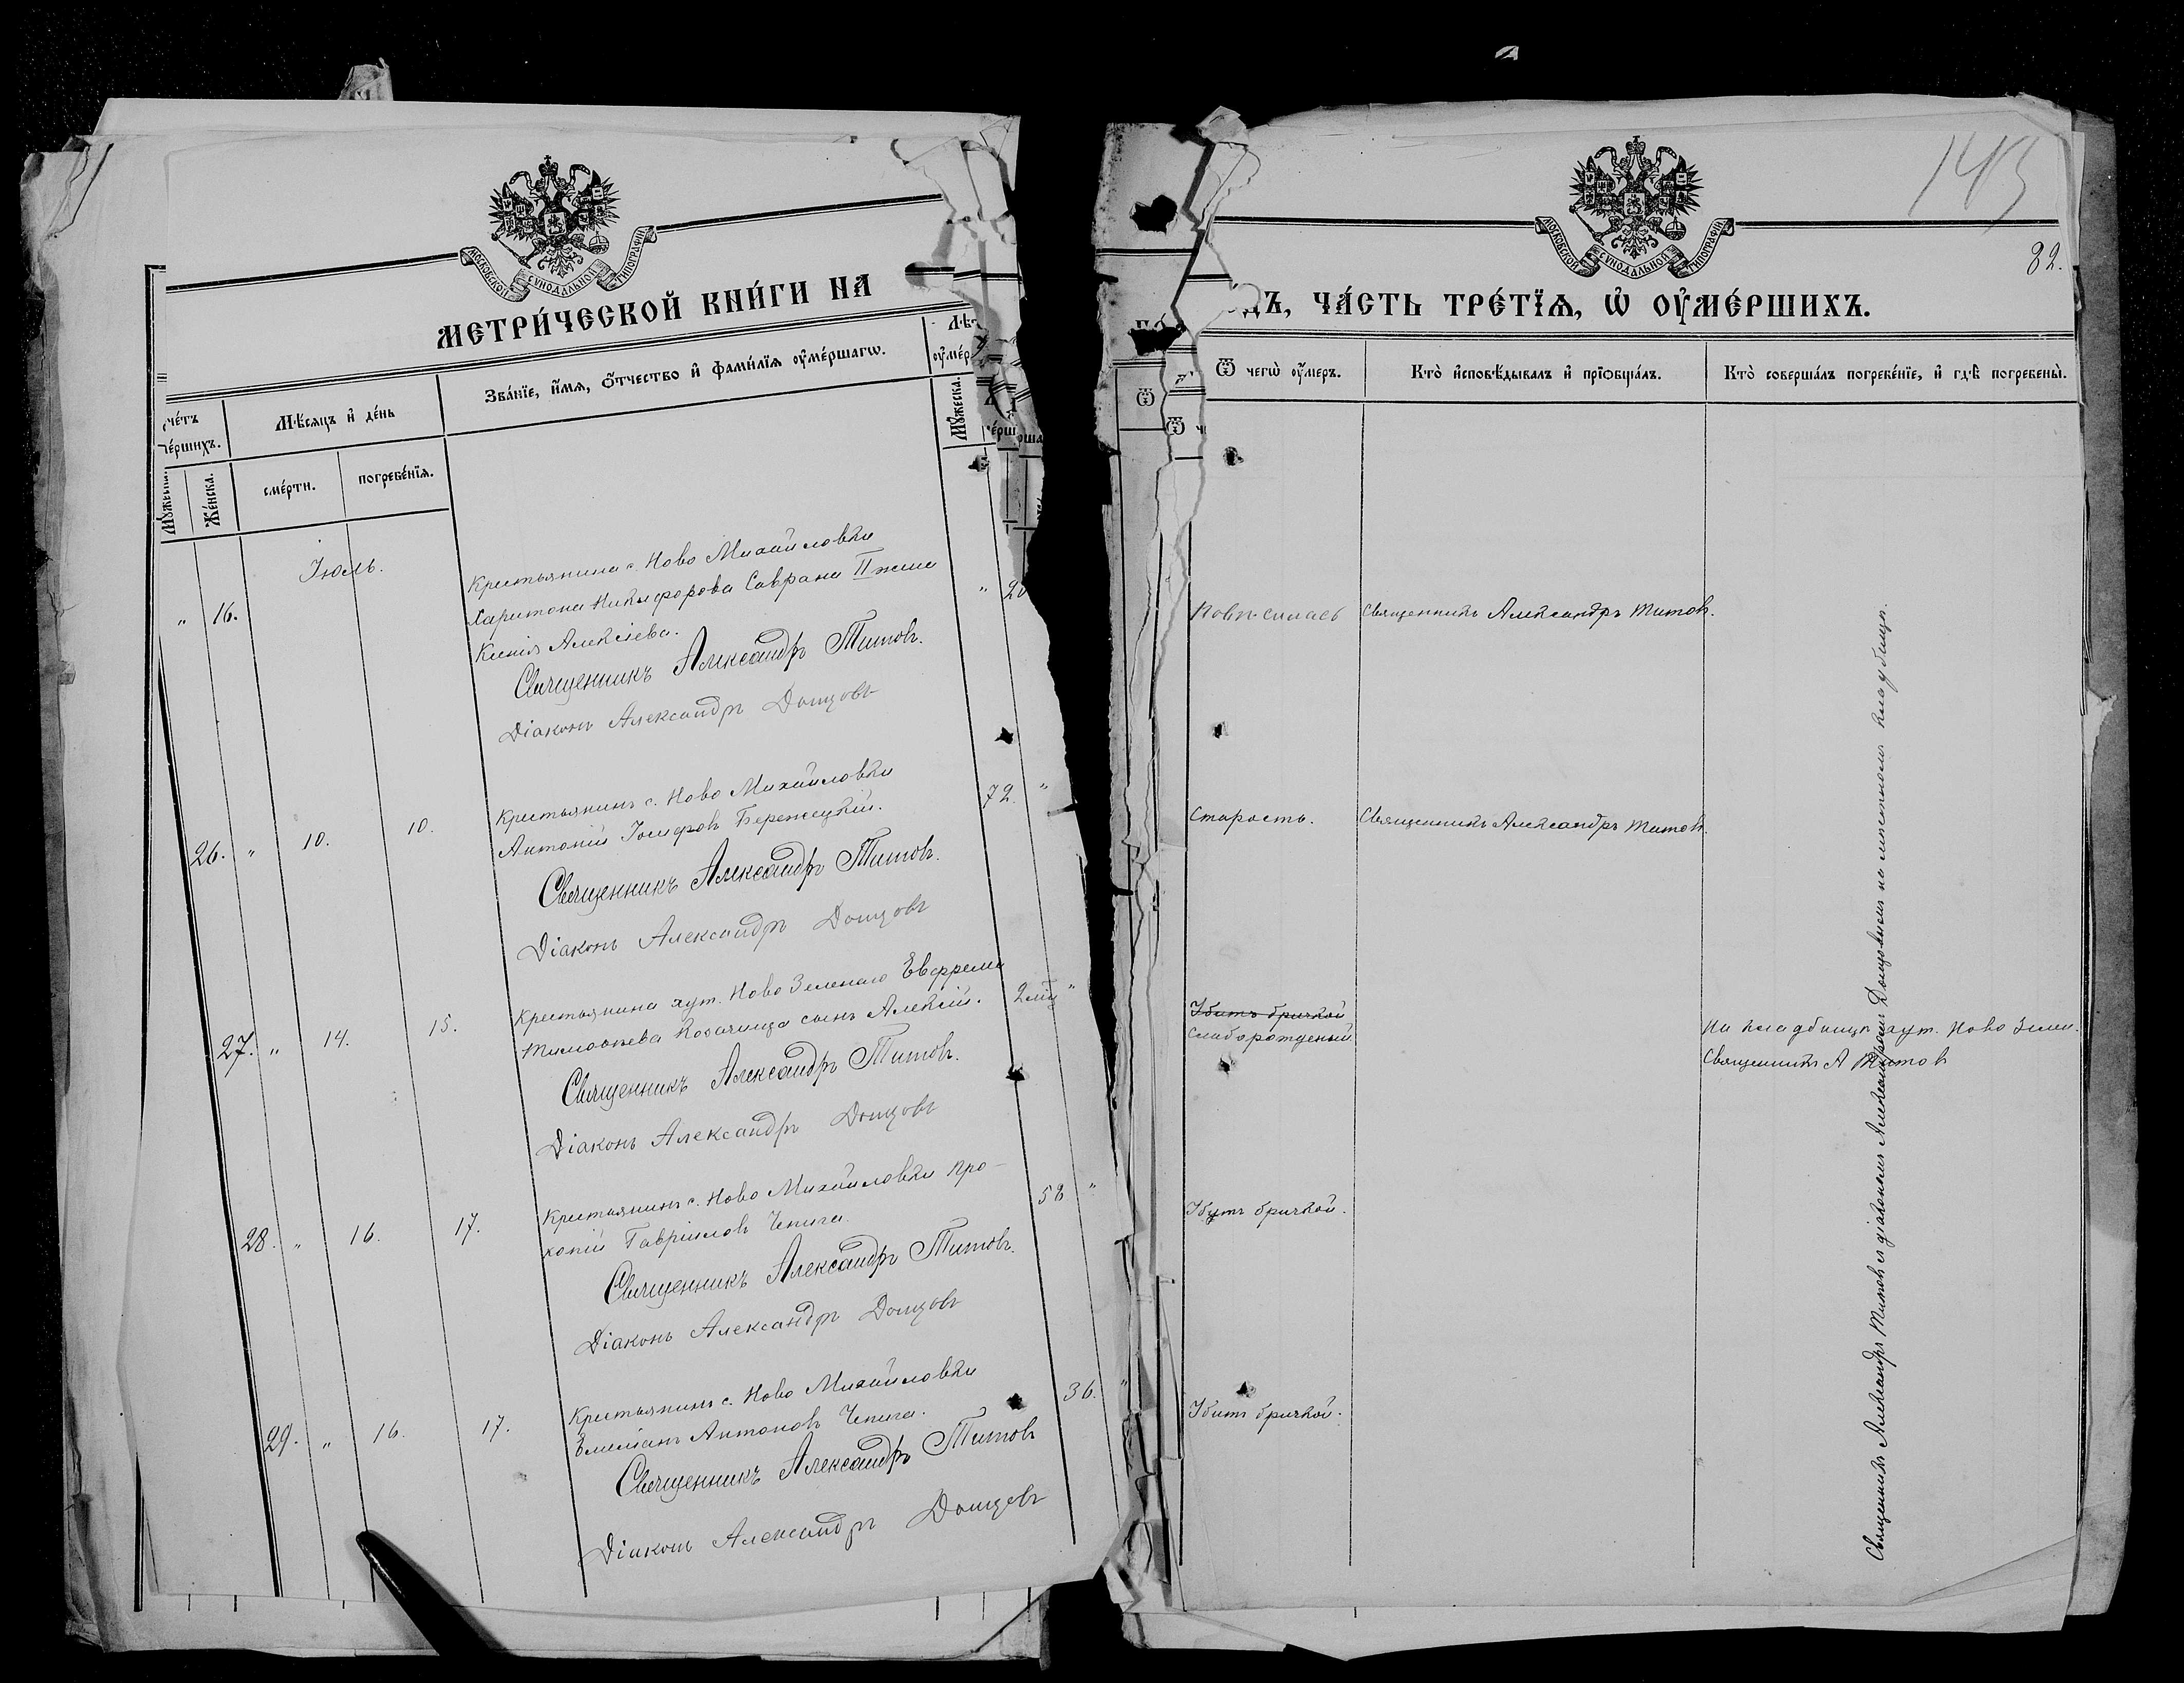 МОСКОВСКОЙ СѴНОДАЛЬНОЙ ТИПОГРАФІИ
МЕТРИ́ЧЕСКОЙ КНИ́ГИ НА
Зва́нїе, и҆́мя, ѻ҆́тчество и҆ фами́лїя ᲂу҆ме́ршагѡ.
Мѣ́сяцъ и҆ де́нь
сме́рти.
погребе́нїя.
Же́нска.
Мꙋ́жеска.
Іюль.
" 16.
Крестьянина с. Ново Михайловки
Харитона Никифорова Саврана II жена
Ксенія Алексіева.
" 20
Священникъ Александръ Титовъ.
Діаконъ Александръ Донцовъ
26. " 10. 10.
Крестьянинъ с. Ново Михайловки
Антоній Іосифовъ Бережецкій.
72. "
Священникъ Александръ Титовъ.
Діаконъ Александръ Донцовъ
27. " 14. 15.
Крестьянина хут. Ново Зеленаго Евфрема
Тимофіева Козачища сынъ Алексій.
"
Священникъ Александръ Титовъ.
Діаконъ Александръ Донцовъ
28. " 16. 17.
Крестьянинъ с. Ново Михайловки Про-
копій Гавріиловъ Чепига.
58 "
Священникъ Александръ Титовъ.
Діаконъ Александръ Донцовъ
29. " 16. 17.
Крестьянинъ с. Ново Михайловки
Емеліанъ Антоновъ Чепига.
36. "
Священникъ Александръ Титовъ
Діаконъ Александръ Донцовъ
МОСКОВСКОЙ СѴНОДАЛЬНОЙ ТИПОГРАФІИ
143
82.
ДЪ, ЧА́СТЬ ТРЕ́ТЇѦ, Ѽ ОУ҆МЕ́РШИХЪ.
Ѿ чегѡ̀ ᲂу҆́меръ.
Кто̀ и҆сповѣ́дывалъ и҆ прїѡбща́лъ.
Кто̀ соверша́лъ погребе́нїе, и҆ гдѣ̀ погребены̀.
Священникъ Александръ Титовъ.
Старость.
Священникъ Александръ Титовъ.
Убитъ бричкой
Слаборожденый
На кладбищѣ хут. Ново Зелен.
Священникъ А Титовъ
Убитъ бричкой.
Убитъ бричкой.
Священникъ Александръ Титовъ съ діакономъ Александромъ Донцовымъ на мѣстномъ кладбищѣ.